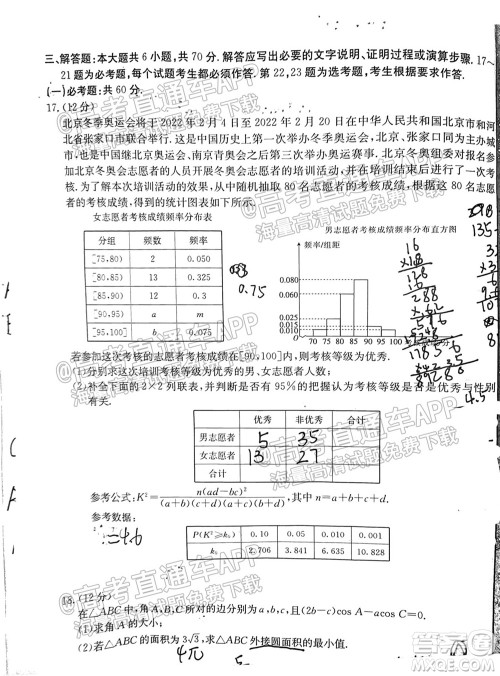 三、解答题:本大题共 6 小题,共 70 分.解答应写出必要的文字说明、证明过程或演算步骤.17~
21 题为必考题,每个试题考生都必须作答.第 22,23 题为选考题,考生根据要求作答.
(一)必考题:共 60 分.
17.(12分)
北京冬季奥运会将于 2022 年 2 月 4 日至 2022 年 2 月 20 日在中华人民共和国北京市和河
北省张家口市联合举行.这是中国历史上第一次举办冬季奥运会,北京、张家口同为主办城
市,也是中国继北京奥运会、南京青奥会之后第三次举办奥运赛事.北京冬奥组委对报名参加
北京冬奥会志愿者的人员开展冬奥会志愿者的培训活动,并在培训结束后进行了一次考
核.为了解本次培训活动的效果,从中随机抽取 80 名志愿者的考核成绩,根据这 80 名志愿者
的考核成绩,得到的统计图表如下所示.
女志愿者考核成绩频率分布表
分组 频数 频率
[75,80) 2 0.050
[80,85) 13 0.325
[85,90) 12 0.3
[90,95) a m
[95,100] b 0.075
0.75
男志愿者考核成绩频率分布直方图
频率/组距
0.080
0.015
0.010
70 75 80 85 90 95 100
若参加这次考核的志愿者考核成绩在[90,100]内,则考核等级为优秀.
(1)分别求这次培训考核等级为优秀的男、女志愿者人数;
(2)补全下面的 2×2 列联表,并判断是否有 95%的把握认为考核等级是否是优秀与性别
有关.
4.5
优秀 非优秀 合计
男志愿者 5 35
女志愿者 13 27
合计
参考公式:K²=n(ad-bc)²/(a+b)(c+d)(a+c)(b+d),其中n=a+b+c+d.
参考数据:
P(K²≥k₀) 0.10 0.05 0.010 0.001
k₀ 2.706 3.841 6.635 10.828
18.(12分)
在△ABC中,角A,B,C所对的边分别为a,b,c,且(2b-c)cos A-acos C=0.
(1)求角A的大小;
(2)若△ABC的面积为3√3,求△ABC外接圆面积的最小值.
4π
高考直通车APP
海量高清试题免费下载